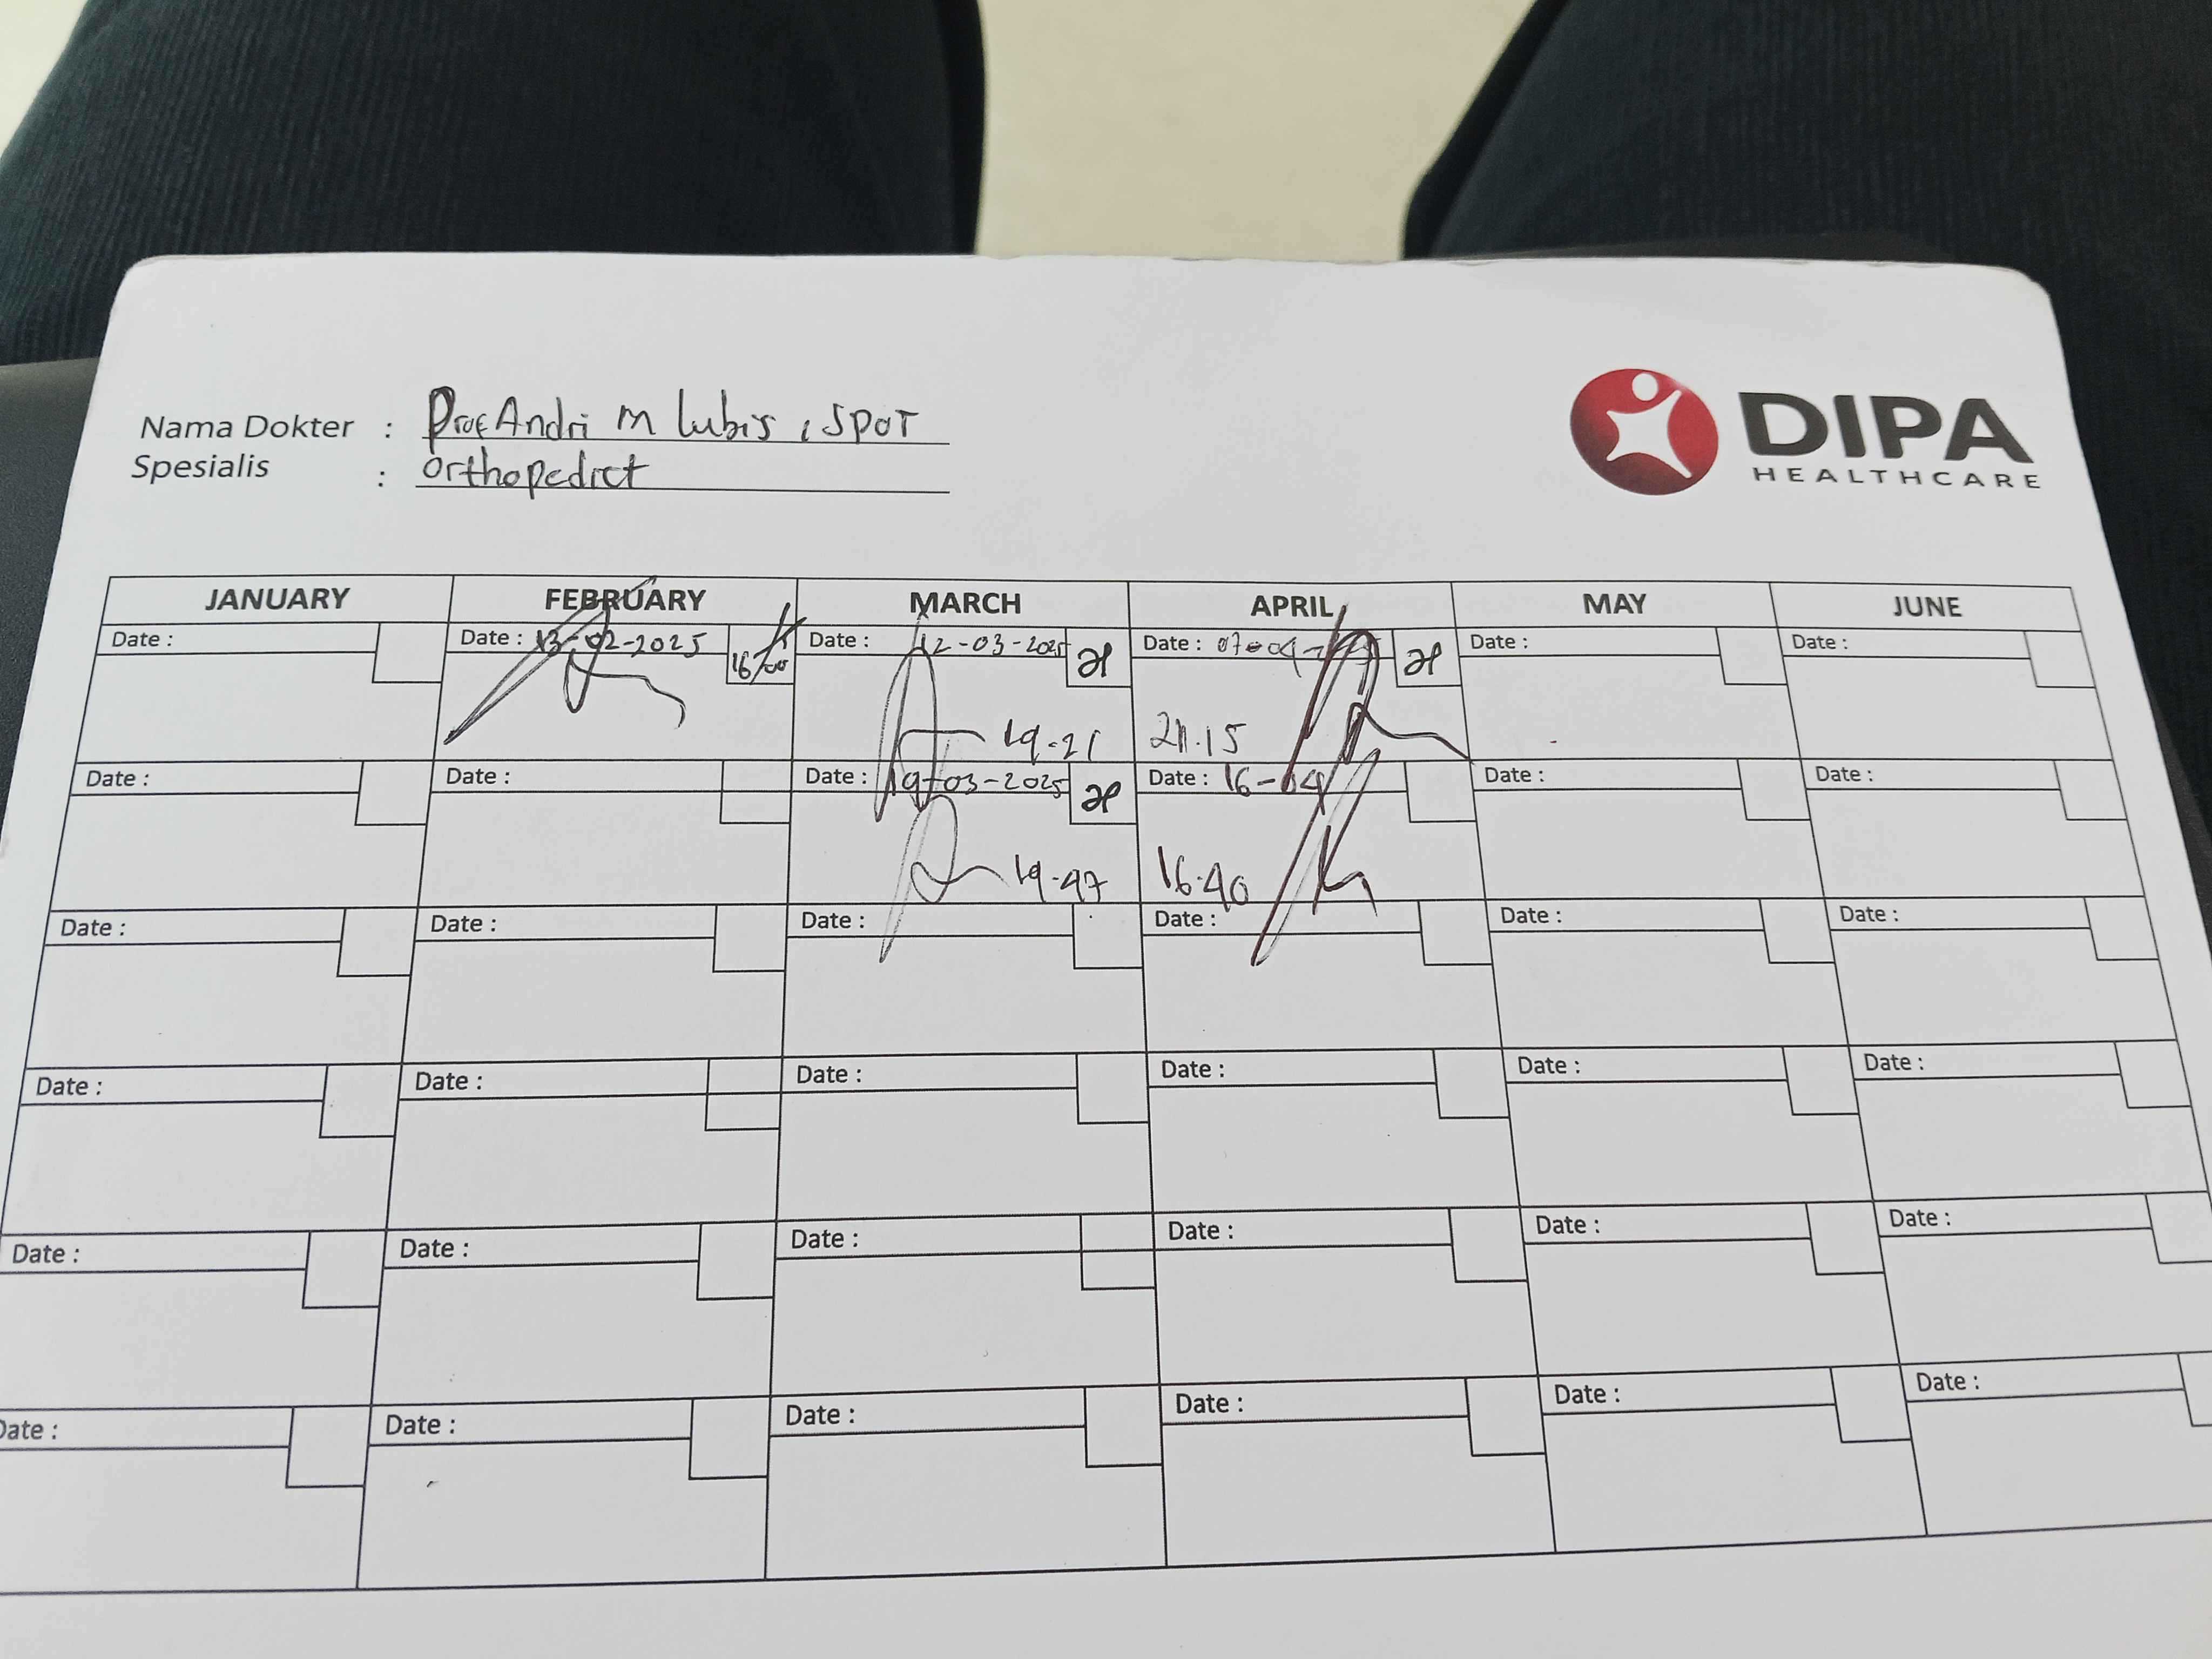 Nama Dokter : Prof Andri M Lubis, SpOT
Spesialis : Orthopedict
DIPA
HEALTHCARE
JANUARY FEBRUARY MARCH APRIL MAY JUNE
Date : Date : 13-02-2025 16/00 Date : 12-03-2025 Date : 07-04- Date : Date :
19-21 21.15
Date : Date : Date : 19-03-2025 Date : 16-04 Date : Date :
19-47 16.40
Date : Date : Date : Date : Date : Date :
Date : Date : Date : Date : Date : Date :
Date : Date : Date : Date : Date : Date :
Date : Date : Date : Date : Date : Date :